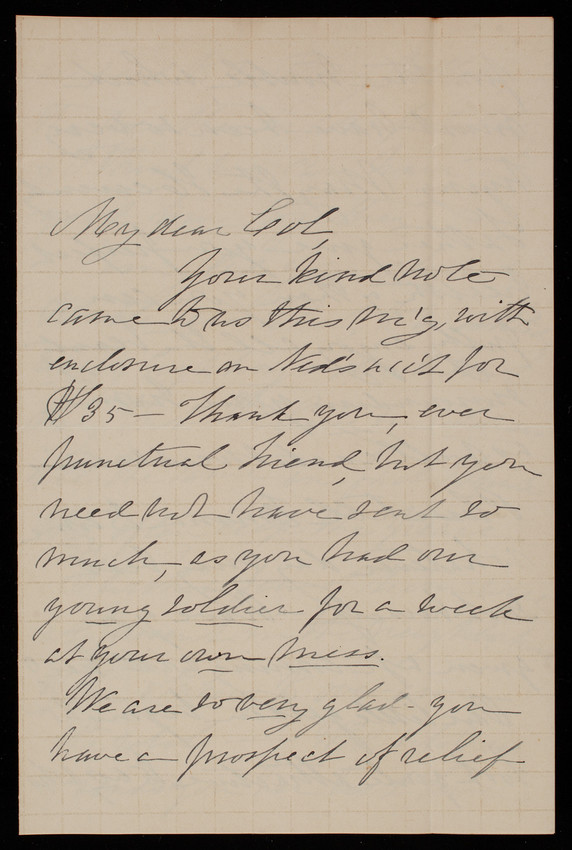 My dear Col,
Your kind note
came to us this m'g, with
enclosure on Ned's ac't for
$35 — Thank you, ever
punctual friend, but you
need not have sent so
much, as you had our
young soldier for a week
at your own mess.
We are so very glad - you
have a prospect of relief